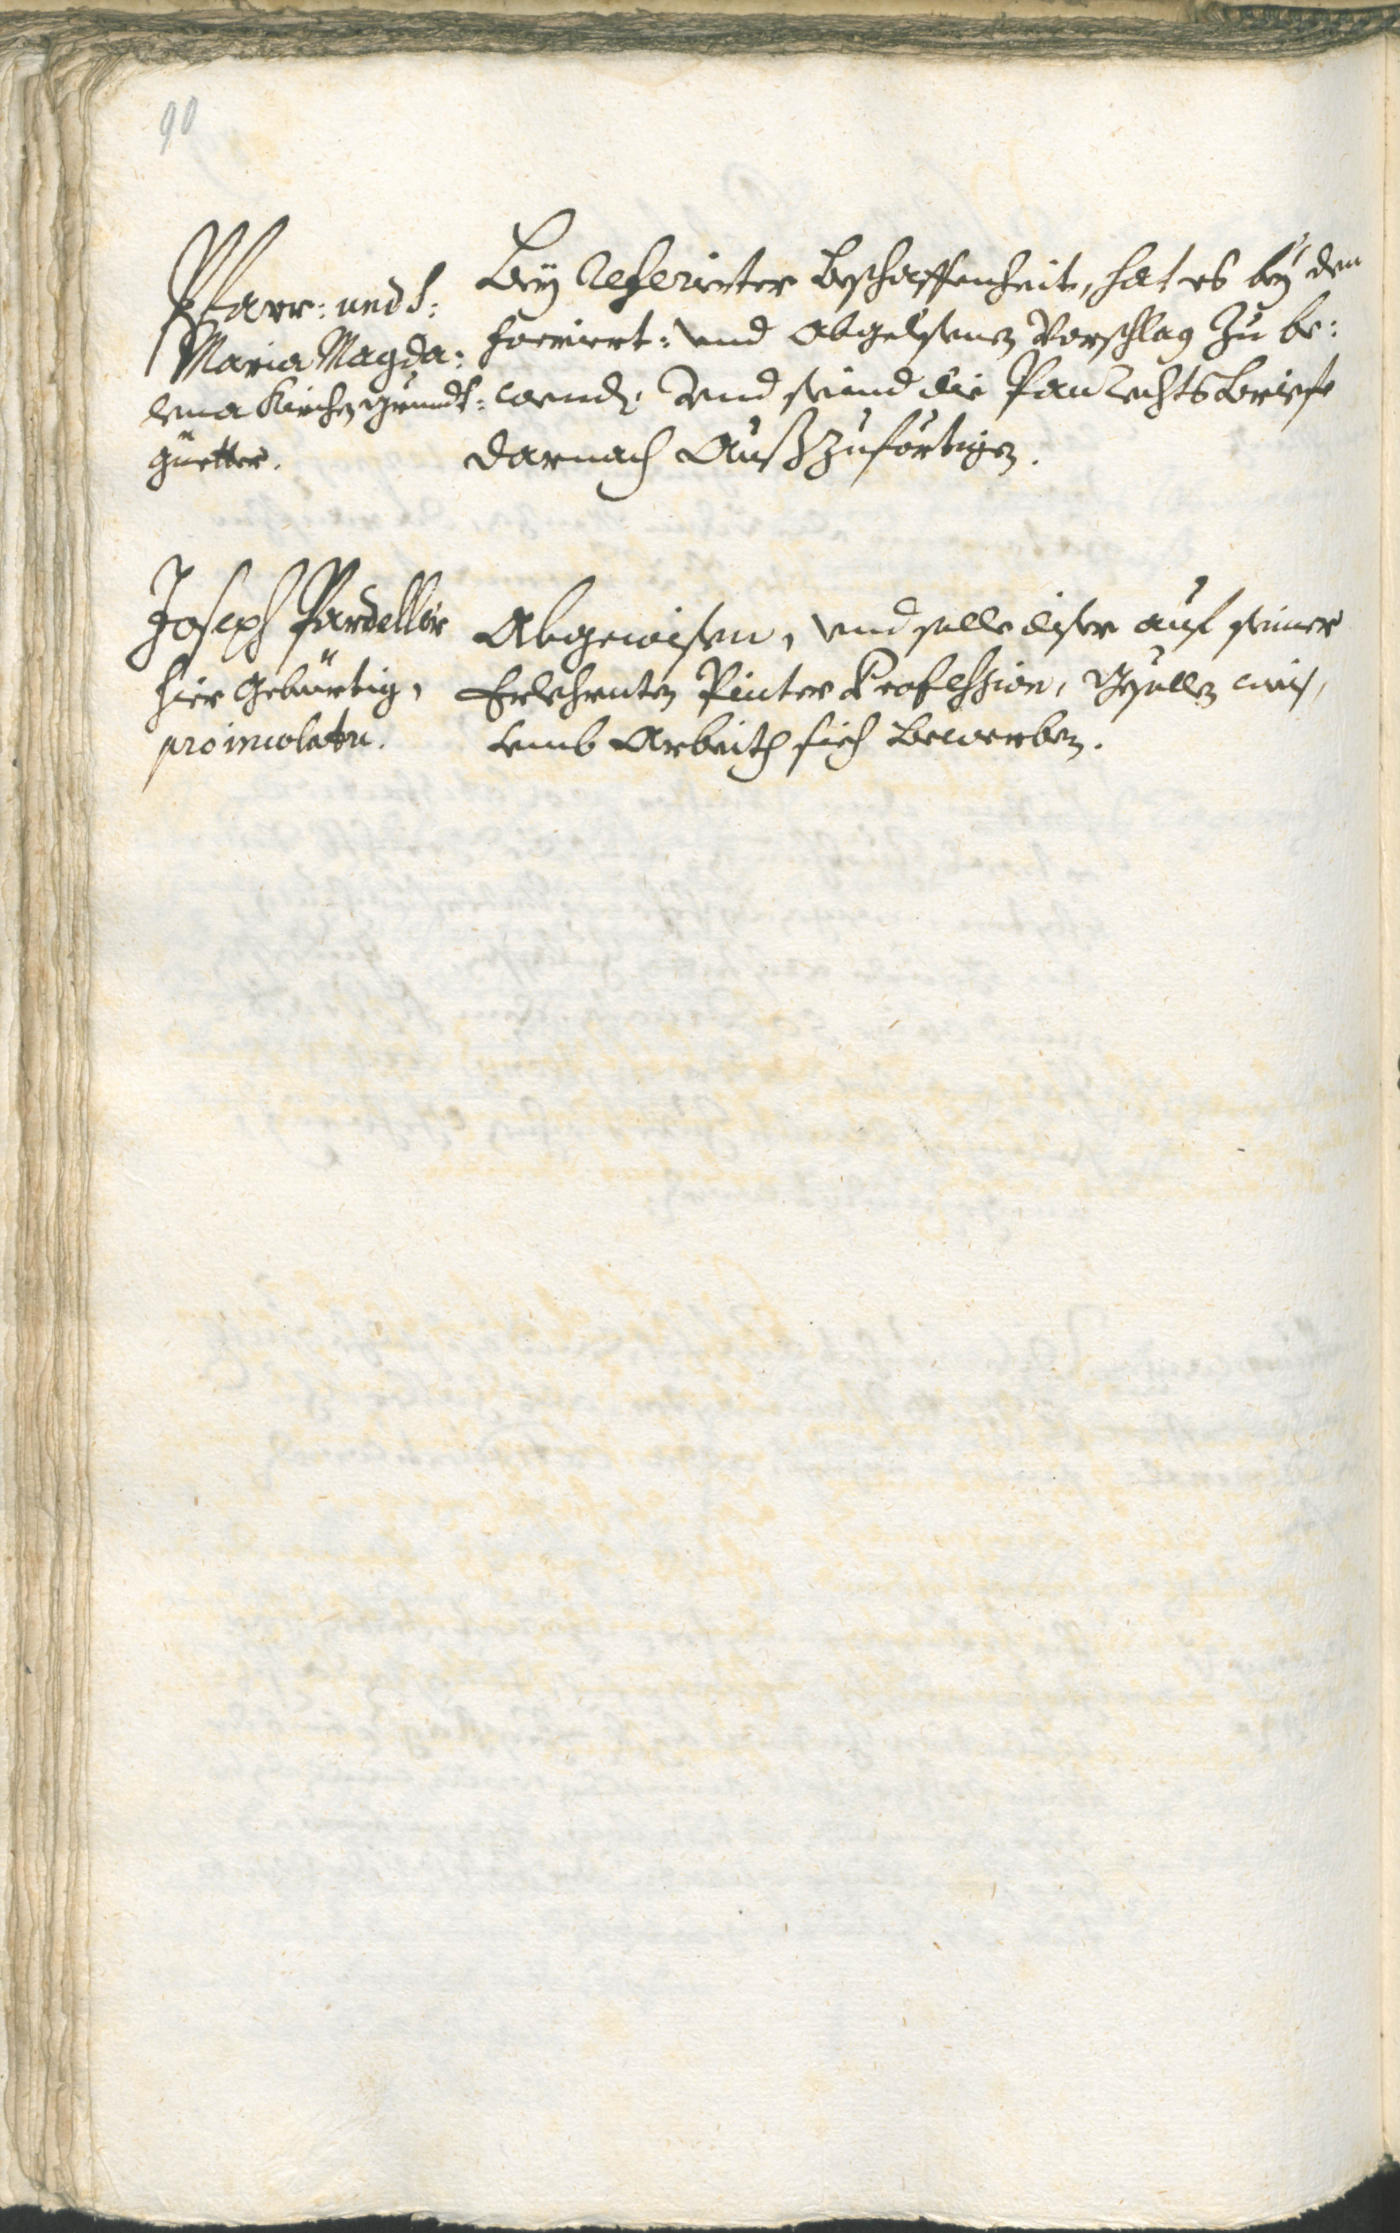 90
Pfarr: und S:
Maria Magda:
lena Kirchen grundt:
güetter.
Bey referierter Beschaffenheit, hat es bey dem
formiert: und abgelesenen Vorschlag zu be:
wendt. Und seind die Paurechts Briefe
darnach Außzuförtigen.
Joseph Pardeller
hier gebürtig,
pro incolatu.
Abgewisen, und solle diser auf seiner
Erlehrnten Pinter Profession, Gsellen weis,
umb Arbeith sich bewerben.